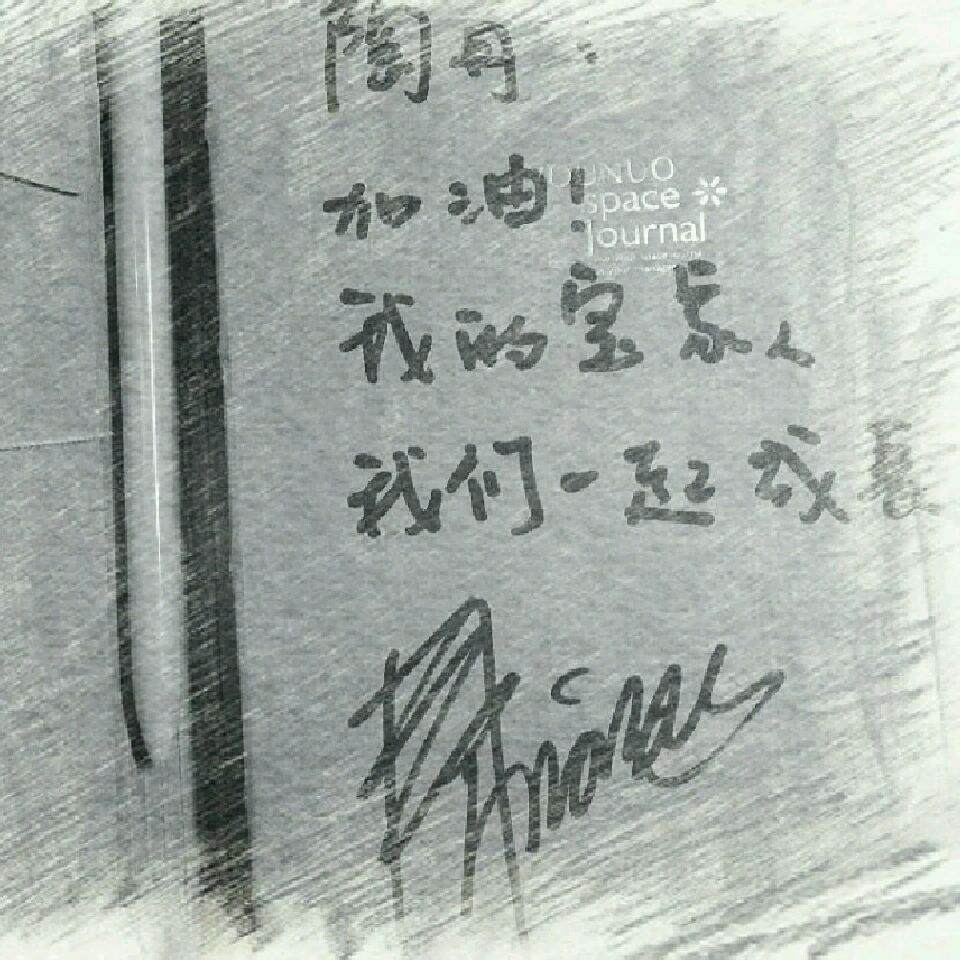 陶丹:
加油!
DUNUO
space
Journal
我的宝贝、
我们一起成长